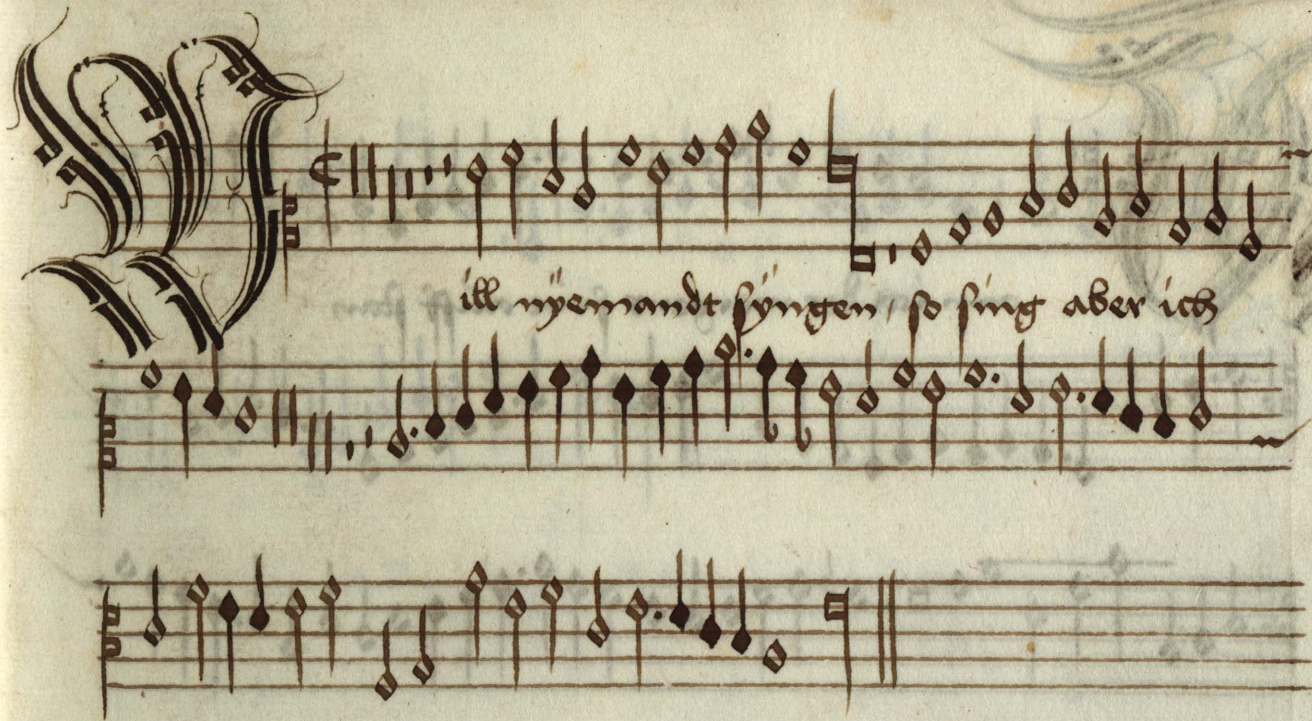 Will nyemandt syngen, so sing aber ich